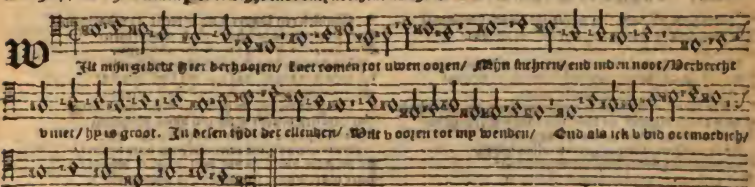 WIlt mijn gebedt Heer verhooren/ Laet comen tot uwen ooren/ Mijn suchten/ end inden noot/ Verberght
v niet/ hy is groot. In desen tijdt der ellenden/ Wilt v ooren tot my wenden/ End als ick v bid ootmoedich/